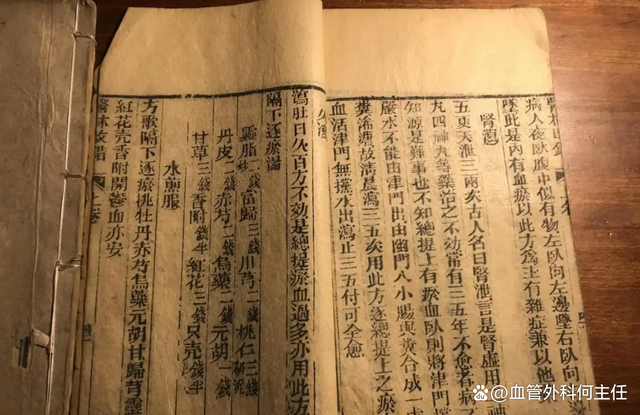 病人夜臥腹中似有物左臥向左邊墜右臥向
墜此是內有血瘀以此方為主有雜症兼以他
腎瀉
五更天泄三兩次古人名曰腎泄言是腎虛用
丸四神丸等藥治之不效常有三五年不愈者病
知源是難事也不知總提上有瘀血臥則將津門
嚴水不能由津門出由幽門入小腸與糞合成一
糞溏泄故清晨瀉三五次用此方逐總提上之瘀
血活津門無擋水出瀉止三五付可全愈
久瀉
瀉肚日久百方不效是總提瘀血過多亦用此方
隔下逐瘀湯
靈脂炒二錢 當歸三錢 川芎二錢 桃仁研泥三錢
丹皮二錢 赤芍二錢 烏藥二錢 元胡一錢
甘草三錢 香附錢半 紅花三錢 只殼錢半
水煎服
方歌隔下逐瘀桃牡丹赤芍烏藥元胡甘歸芎靈
紅花殼香附開鬱血亦安
醫林改錯 上卷
百家号@血管外科何主任